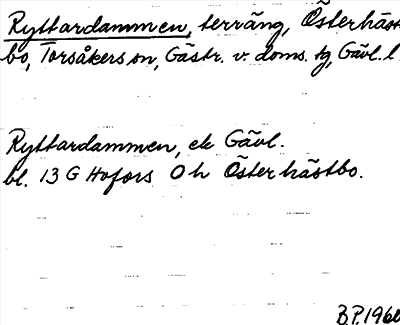 Ryttardammen, terräng, Österhäst
bo, Torsåkers sn, Gästr. v. doms. tg, Gävl. l.
Ryttardammen, ek Gävl.
bl. 13 G Hofors Oh Österhästbo.
B.P. 1960